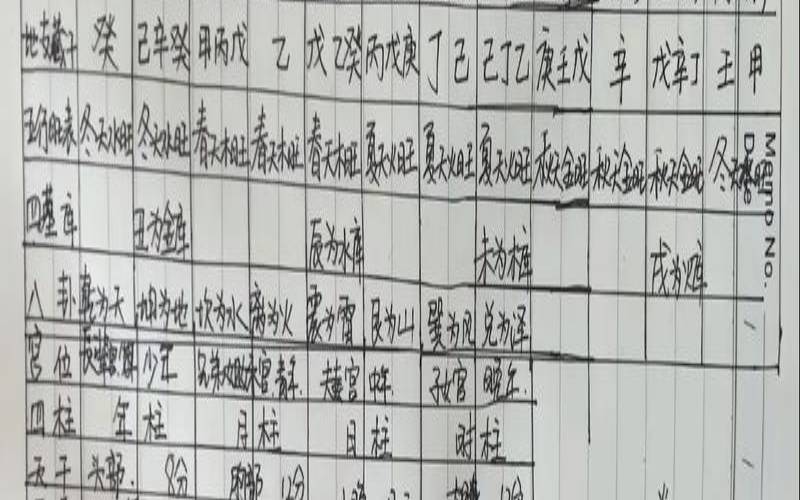 地支藏干 癸 己辛癸 甲丙戊 乙 戊乙癸 丙戊庚 丁己 己丁乙 庚壬戊 辛 戊辛丁 壬甲
五行旺衰 冬天水旺 冬天水旺 春天木旺 春天木旺 春天木旺 夏天火旺 夏天火旺 夏天火旺 秋天金旺 秋天金旺 秋天金旺 冬天水旺
四墓库 丑为金库 辰为水库 未为木库 戌为火库
八卦 乾为天 坤为地 坎为水 离为火 震为雷 艮为山 巽为风 兑为泽
宫位 少年 青年 夫妻宫 中年 子女宫 晚年
四柱 年柱 月柱 日柱 时柱
天干 头部 8分 胸部 12分 12分
Memo No.